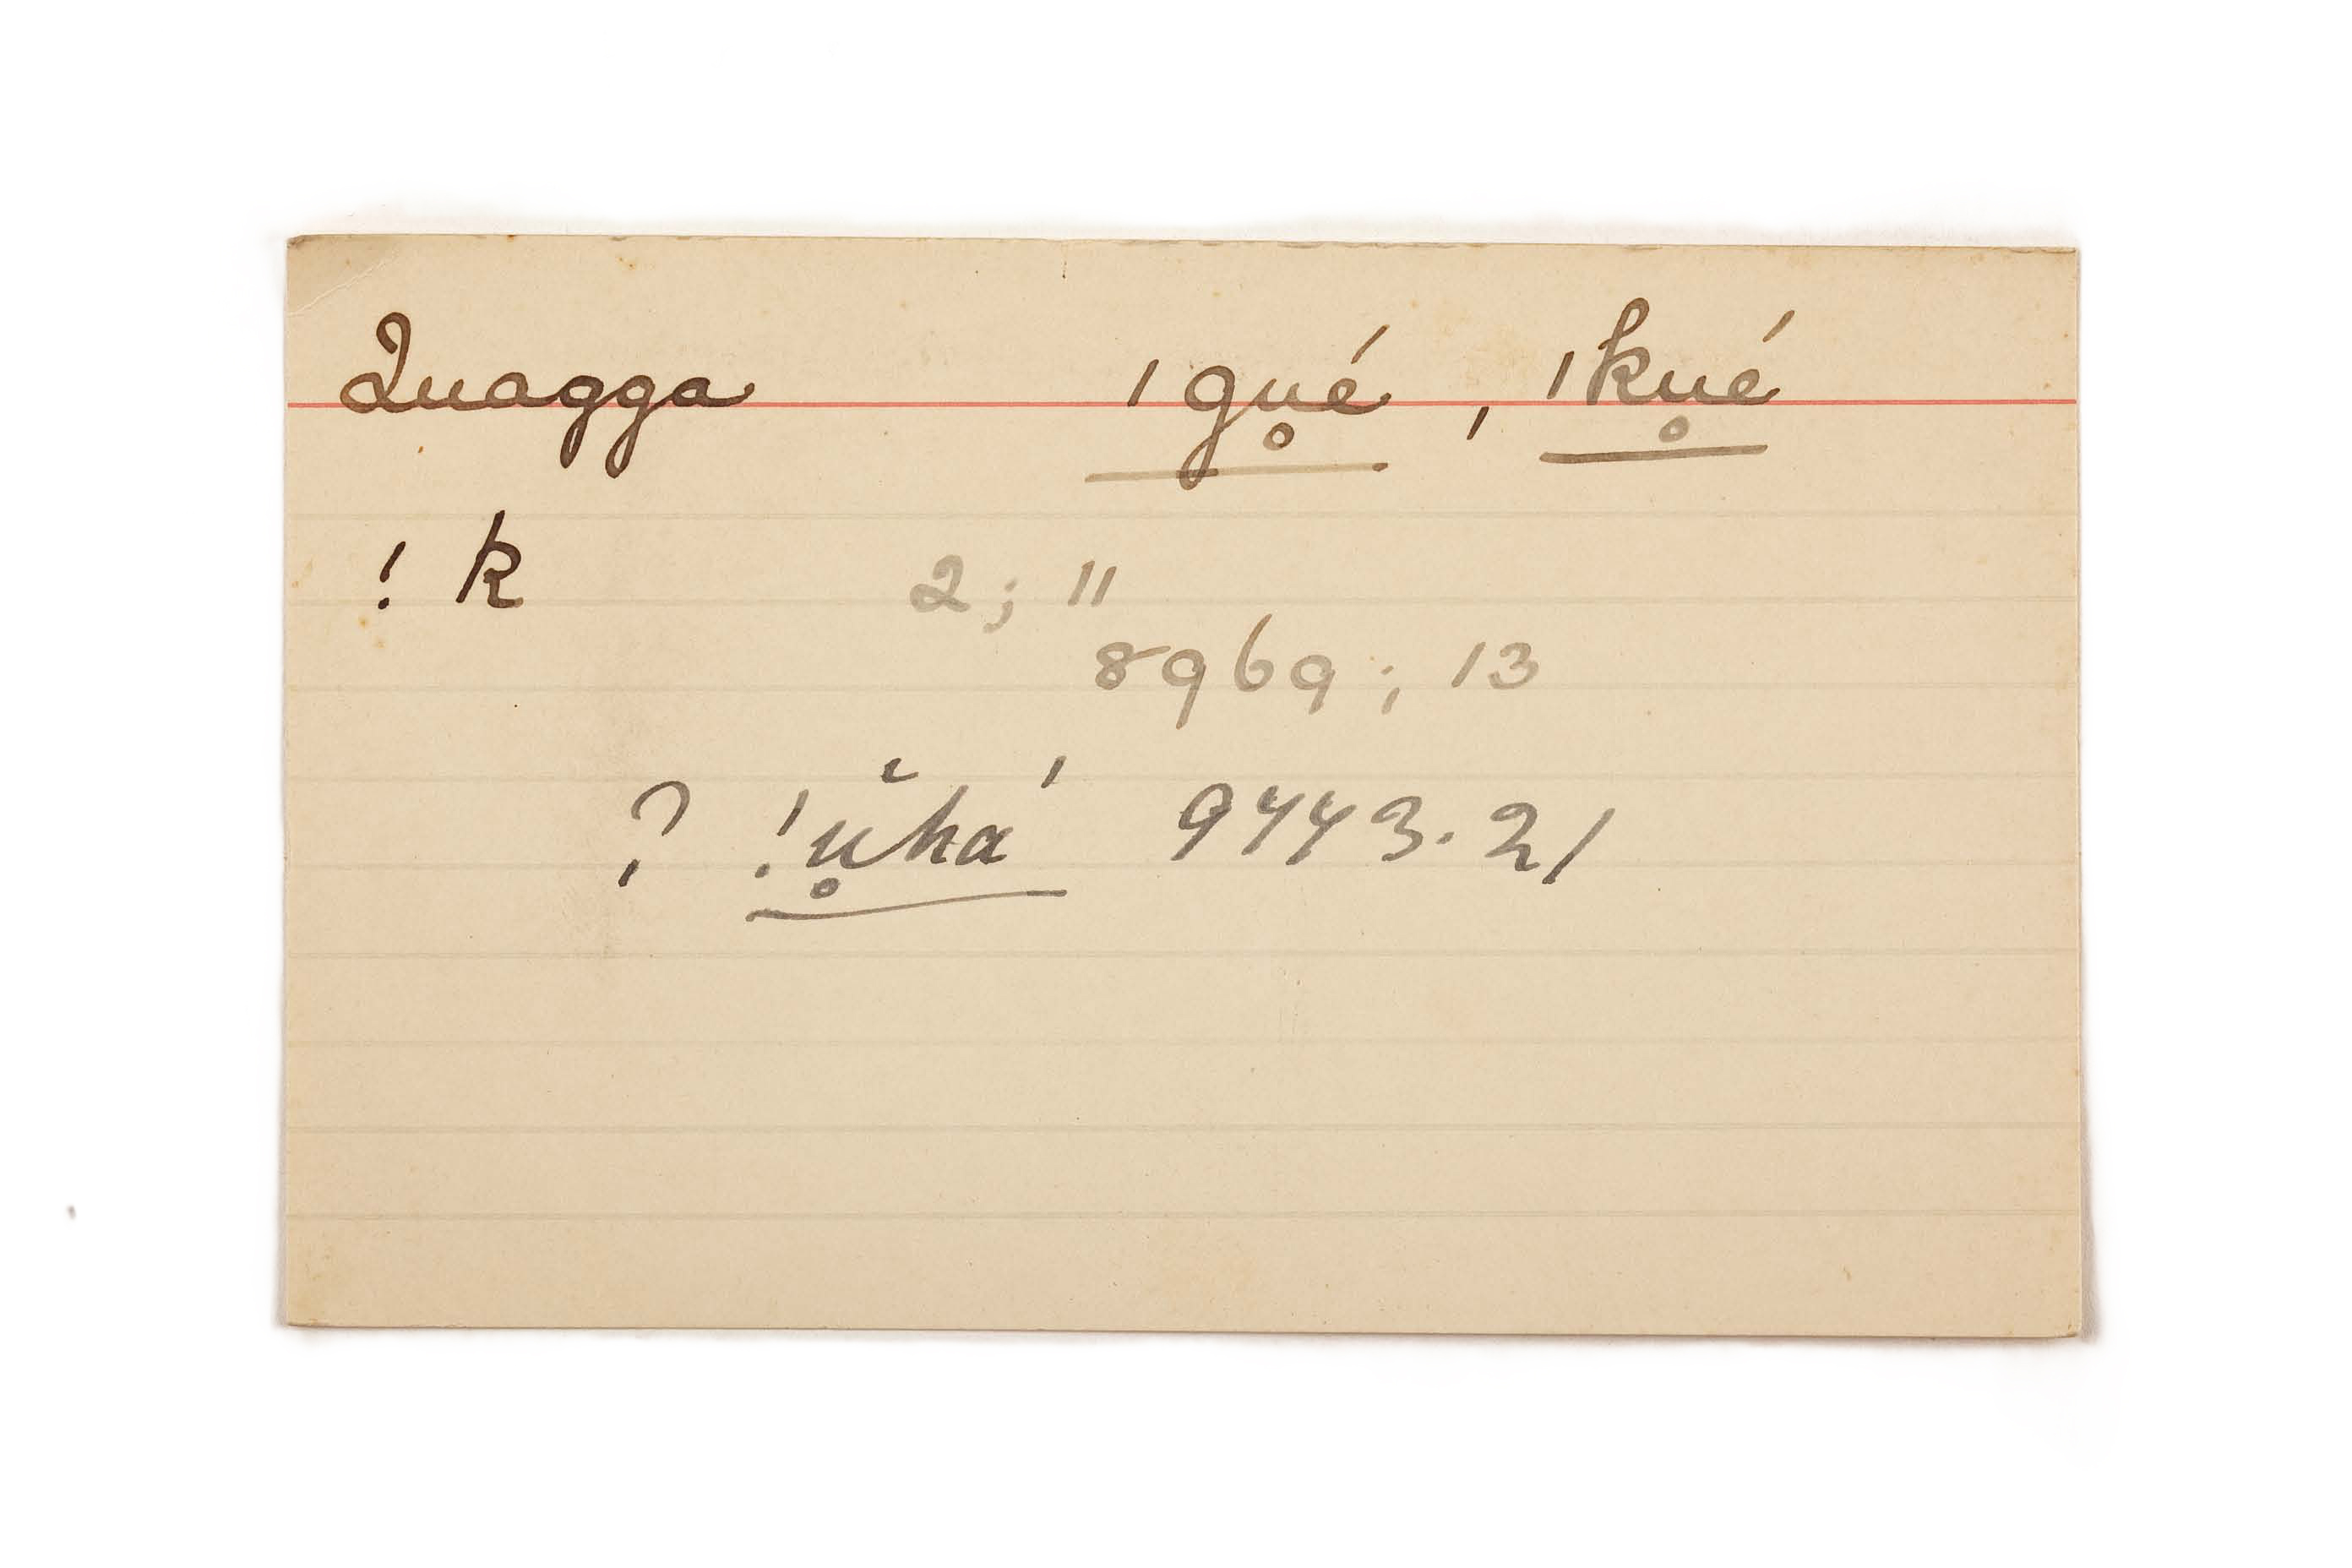 Quagga ǀgu̥é , ǀku̥é
! k 2; 11
8969; 13
? !ŭ̥há 9443.21